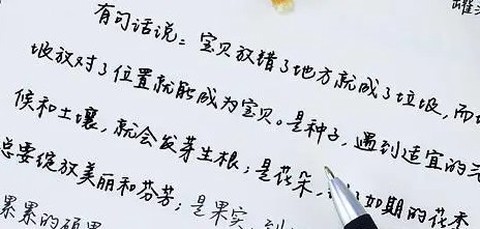 罐头
有句话说：宝贝放错了地方就成了垃圾，而垃
圾放对了位置就能成为宝贝。是种子，遇到适宜的气
候和土壤，就会发芽生根；是花朵，如期的花季
总要绽放美丽和芬芳；是果实，到
累累的硕果